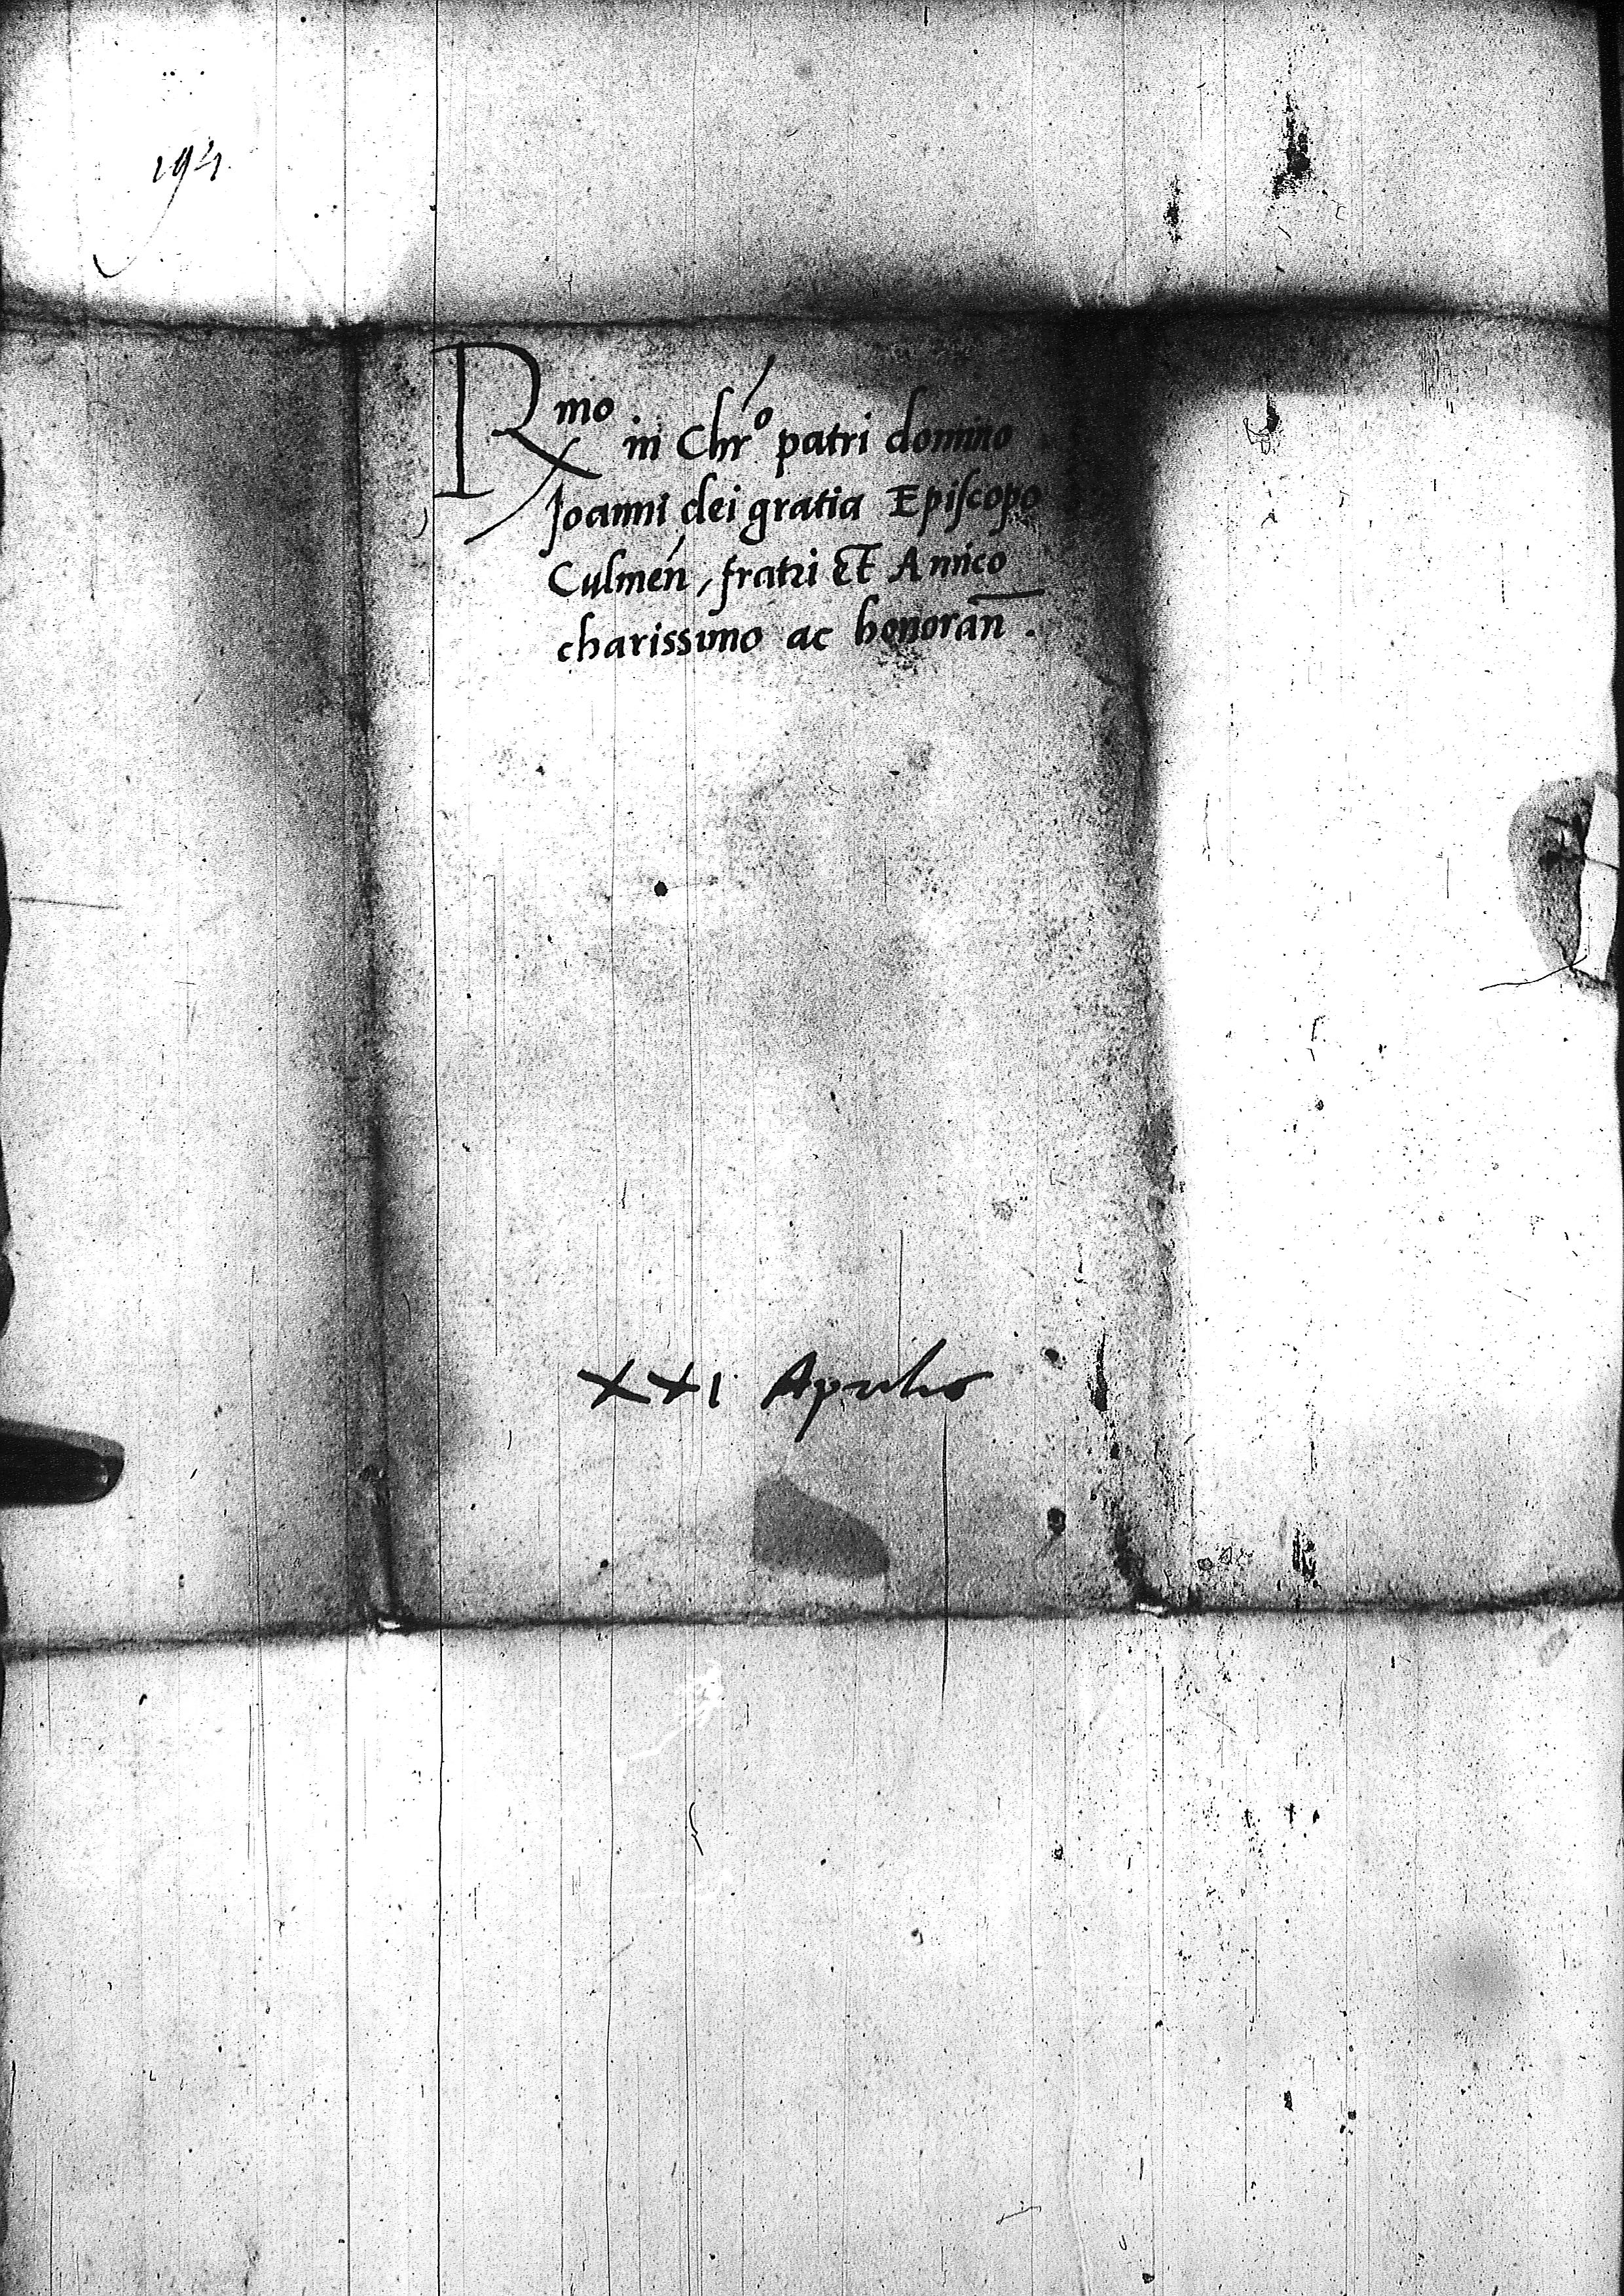 194
Rmo in Chro patri domino
Joanni dei gratia Episcopo
Culmen, fratri et Amico
charissimo ac honoran.
XXI Aprilis